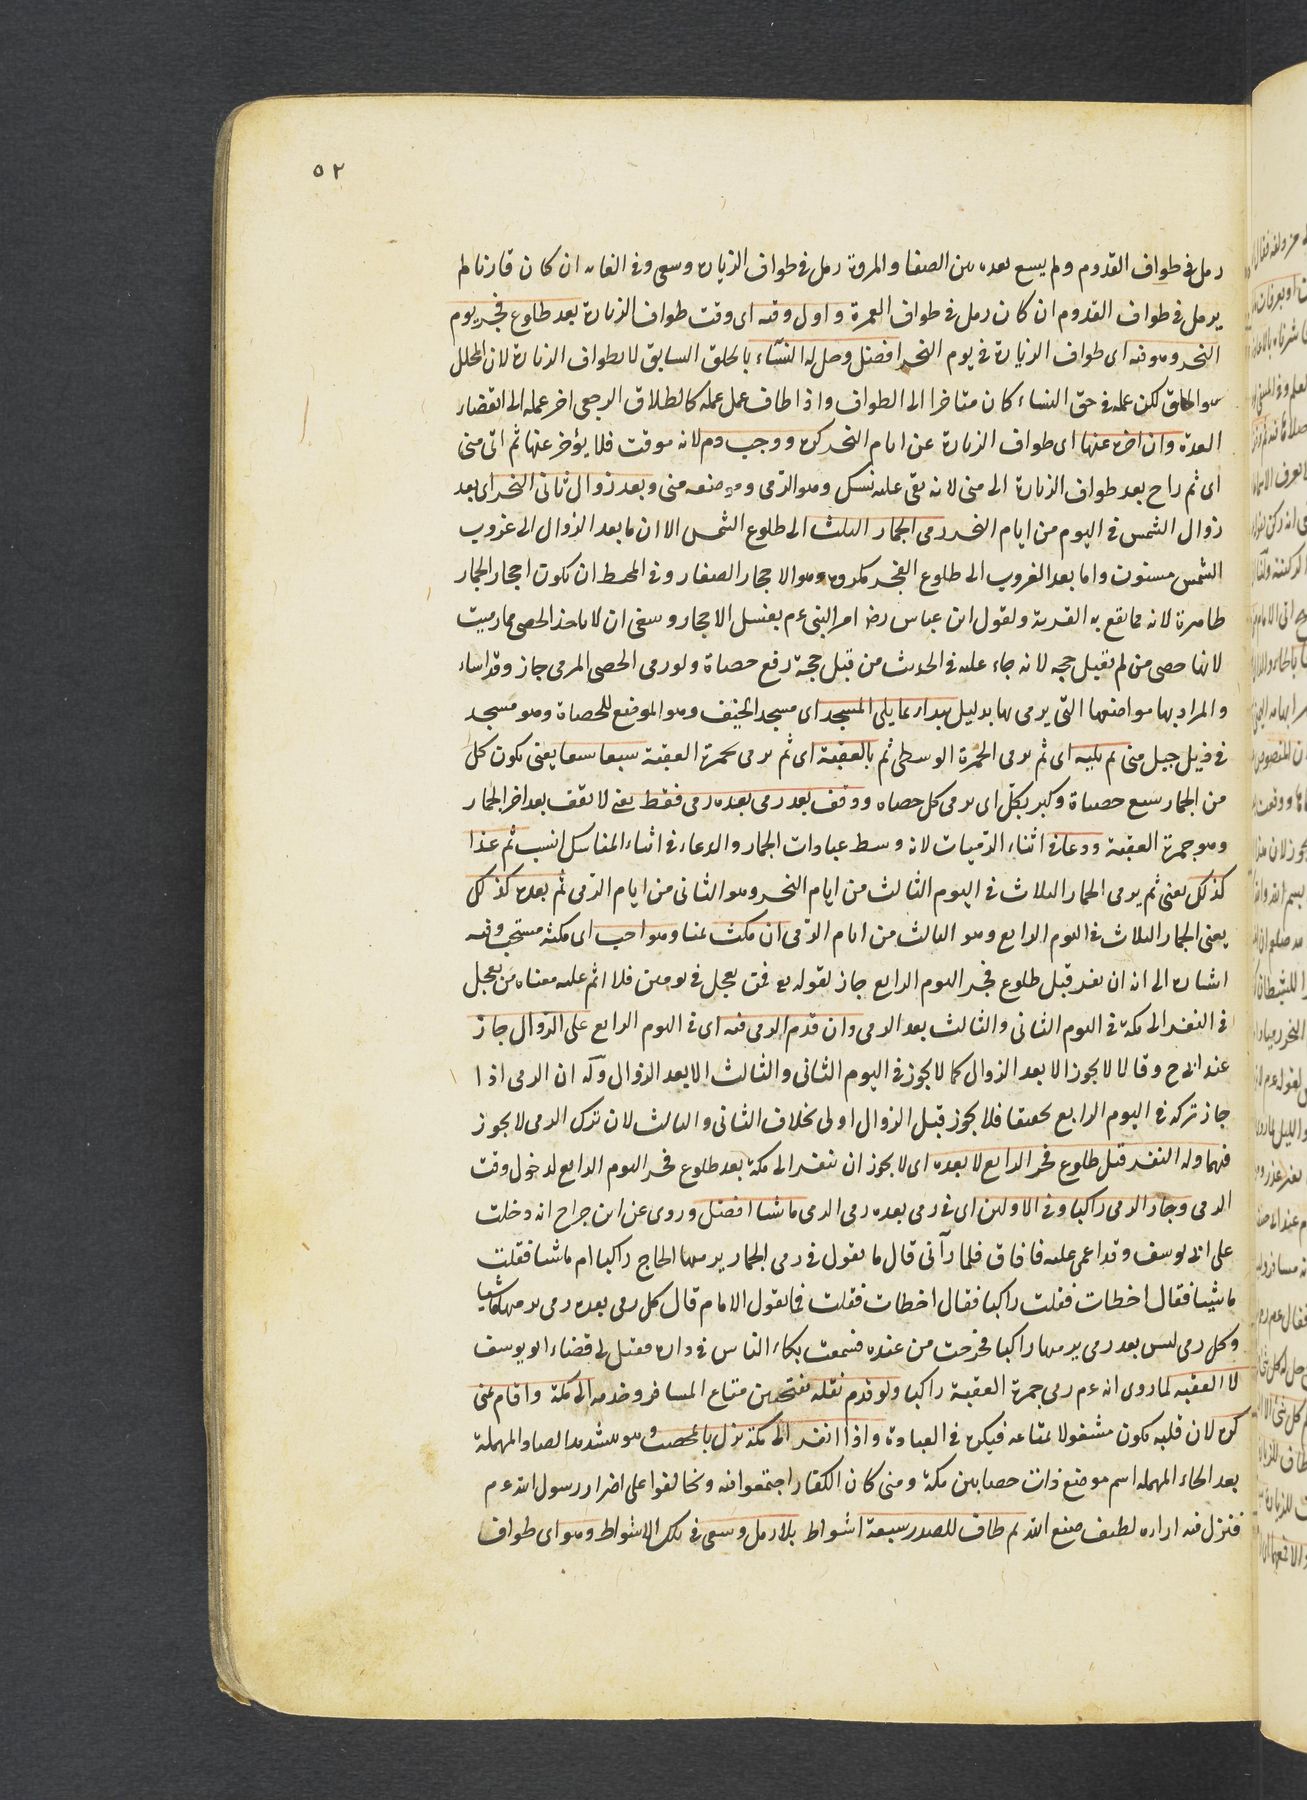 ٥٢
رمل في طواف القدوم ولم يسع بعده بين الصفا والمروة رمل في طواف الزيارة وسعى وفي الغاية ان كان قارنا لم
يرمل في طواف القدوم ان كان رمل في طواف العمرة واول وقته اى وقت طواف الزيارة بعد طلوع فجر يوم
النحر وهو فيه اى طواف الزيارة في يوم النحر افضل وحل له النساء بالحلق السابق لا بطواف الزيارة لان المحلل
هو الحلق لكن عمله في حق النساء كان متاخرا الى الطواف واذا طاف عمل عمله كالطلاق الرجعي اخر عمله الى انقضاء
العدة وان اخره عنها اى طواف الزيارة عن ايام النحر كره ووجب دم لانه موقت فلا يؤخر عنها ثم اتى منى
اى ثم راح بعد طواف الزيارة الى منى لانه بقى عليه نسك وهو الرمى وموضعه منى وبعد زوال ثانى النحر اى بعد
زوال الشمس في اليوم من ايام النحر رمى الجمار الثلث الى طلوع الشمس الا ان ما بعد الزوال الى غروب
الشمس مسنون واما بعد الغروب الى طلوع الفجر مكروه وهو الاحجار الصغار وفي المحيط ان يكون احجار الجمار
طاهرة لانه مما يقع به القربة ولقول ابن عباس رض امر النبي ءم بغسل الاحجار وينبغى ان لا ياخذ الحصى مما رميت
لانها حصى من لم يقبل حجه لانه جاء عليه في الحديث من قبل حجة رفع حصاة ولو رمى الحصى المرمى جاز وقد اساء
والمراد بها مواضعها التى يرمى بها بدليل يبداء بما يلى المسجد اى مسجد الخيف وهو الموضع للحصاة وهو مسجد
في ذيل جبل منى ثم يليه اى ثم يرمى الجمرة الوسطى ثم بالعقبة اى ثم يرمى جمرة العقبة سبعا سبعا يعنى يكون كل
من الجمار سبع حصاة وكبر بكل اى يرمى كل حصاه ووقف بعد رمى بعده رمى فقط يعنى لا يقف بعد اخر الجمار
وهو جمرة العقبة ودعا في اثناء الرميات لانه وسط عبادات الجمار والدعاء في اثناء المناسك انسب ثم غدا
كذلك يعنى ثم يرمى الجمار الثلاث في اليوم الثالث من ايام النحر وهو الثانى من ايام الرمى ثم بعده كذلك
يعنى الجمار الثلاث في اليوم الرابع وهو الثالث من ايام الرمى ان مكث بمنا وهو احب اى مكثه مستحب وفيه
اشارة الى انه ان نفر قبل طلوع فجر اليوم الرابع جاز لقوله تع فمن تعجل في يومين فلا اثم عليه معناه من تعجل
في النفر الى مكة في اليوم الثانى والثالث بعد الرمى وان قدم الرمى فيه اى في اليوم الرابع على الزوال جاز
عند ابى ح وقالا لا يجوز الا بعد الزوال كما لا يجوز في اليوم الثانى والثالث الا بعد الزوال وله ان الرمى اذا
جاز تركه في اليوم الرابع تحفيفا فلا يجوز قبل الزوال اولى بخلاف الثانى والثالث لان ترك الرمى لا يجوز
فيهما وله النفر قبل طلوع فجر الرابع لا بعده اى لا يجوز ان ينفر الى مكة بعد طلوع فجر اليوم الرابع لدخول وقت
الرمى وجاز الرمى راكبا وفي الاولين اى في رمى بعده رمى الرمى ماشيا افضل وروى عن ابن جراح انه دخلت
على ابى يوسف وقد اغمى عليه فافاق فلما رآنى قال ما تقول في رمى الجمار يرميها الحاج راكبا ام ماشيا فقلت
ماشيا فقال اخطات فقلت راكبا فقال اخطات فقلت فما يقول الامام قال كل رمى بعده رمى يرميها ماشيا
وكل رمى ليس بعد رمى يرميها راكبا فخرجت من عنده فسمعت بكاء الناس في داره فقيل لى قضاء ابو يوسف
لا العقبه لما روى انه ءم رمى جمرة العقبة راكبا ولو قدم نقله بفتحتين متاع المسافر وخدمه الى مكة واقام بمنى
كره لان قلبه يكون مشغولا بمتاعه فيكره في العبادة واذا انفر الى مكة نزل بالمحصب وهو بتشديد الصاد المهملة
بعد الحاء المهمله اسم موضع ذات حصا بين مكة ومنى كان الكفار اجتمعوا فيه وتحالفوا على اضرار رسول الله ءم
فنزل فيه اراده لطيف صنع الله ثم طاف للصدر سبعة اشواط بلا رمل وسعى في تلك الاشواط وهو اى طواف